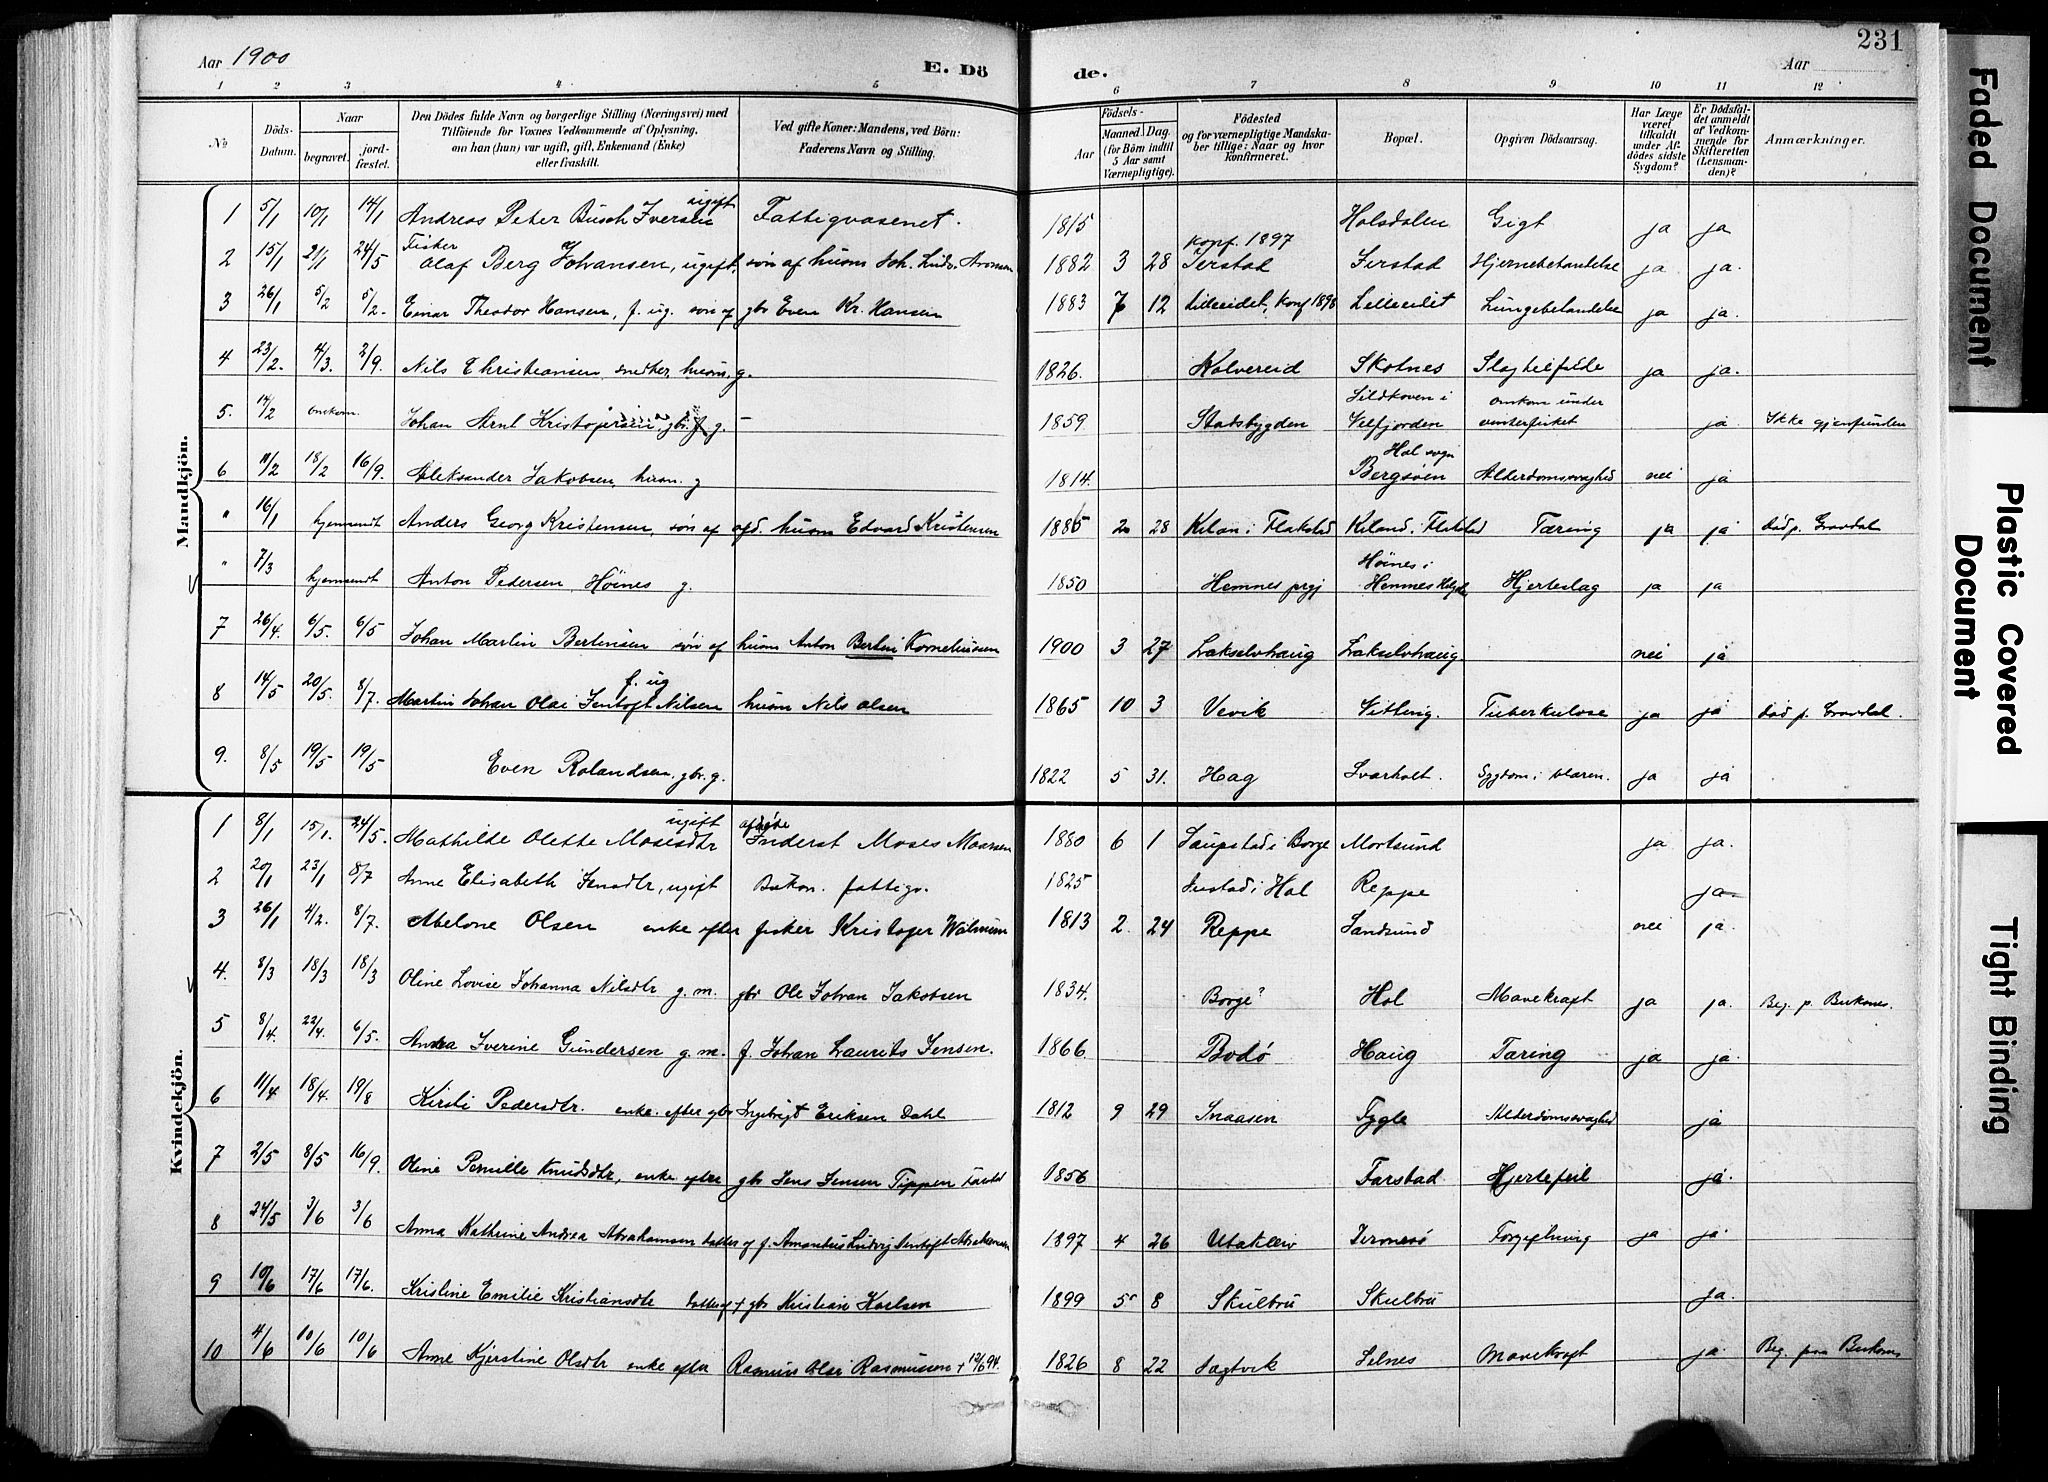 Aar 1900 E. Dö
de. Aar 231
1 2 3 4 5 6 7 8 9 10 11 12
№ | Döds-Datum. | Naar begravet. | jord-fæstet. | Den Dödes fulde Navn og borgerlige Stilling (Næringsvei) med Tilföiende for Voxnes Vedkommende af Oplysning, om han (hun) var ugift, gift, Enkemand (Enke) eller fraskilt. | Ved gifte Koner: Mandens, ved Börn: Faderens Navn og Stilling. | Födsels- Aar | Maaned Dag. (for Börn indtil 5 Aar samt Værnepligtige). | Födested og for værnepligtige Mandskaber tillige: Naar og hvor Konfirmeret. | Bopæl. | Opgiven Dödsaarsag. | Har Læge været tilkaldt under Afdödes sidste Sygdom? | Er Dödsfaldet anmeldt af Vedkommende for Skifteretten (Lensmanden)? | Anmærkninger.
Mandkjön.
1 5/1 10/1 14/1 Andreas Peter Busch Iversen ugift Fattigvæsenet. 1815 Holsdalen Gigt ja ja
2 15/1 21/1 24/5 Fisker Olaf Berg Johansen, ugift, søn af husm Joh. Ludv. 1882 3 28 Konf. 1897 Hjernebetændelse ja ja.
3 26/1 5/2 5/2 Einar Theodor Hansen, f. ug. søn af gbr Even Kr. Hansen 1883 7 12 Lilleeidet, Konf 1898 Lilleeidet Lungebetændelse ja ja.
4 23/2. 4/3. 2/9. Nils Christiansen, snedker, husm. g. 1826. Kolvereid Skotnes Slagtilfælde ja ja.
5. 14/2 omkom Johan Arnt gbr. g. — 1859 Stadsbygden Sildkoven i Velfjorden omkom under vinterfisket ja Ikke gjenfunden
6 11/2 18/2 16/9. Aleksander Jakobsen, husm. g 1814. Hol sogn Bergsøen Alderdomssvaghed nei ja
" 16/1 hjemsendt Anders Georg Kristensen, søn af afd. husm Edvard Kristensen 1885 2 28 Kilan i Flakstad Kiland i Flakstad Tæring ja ja død p. Gravdal
" 7/3 hjemsendt Anton Pedersen, Høines g. 1850 Hemnes prgj Høines i Hemnes Helgeln Hjerteslag ja ja
7 26/4. 6/5. 6/5 Johan Martin Bertinsen søn af husm Anton Bertin Korneliussen 1900 3 27 Lakselvhaug Lakselvhaug. nei ja
8 14/5 20/5. 8/7. Martin Johan Olai Jentoft Nilsen f. ug husm Nils Olsen 1865 10 3 Vevik Vitting. Tuberkulose ja ja død p. Gravdal.
9. 8/5 19/5 19/5 Even Rolandsen, gbr. g. 1822 5 31. Hag Svarholt. Sygdom i blæren. ja ja
Kvindekjön.
1 8/1 15/1. 24/5. Mathilde Olette Mosesdtr ugift afdøde Inderst Moses 1880 6 1 Saupstad i Borge Mortsund ja ja.
2 20/1 23/1 8/7 Anne Elisabeth Jensdtr, ugift fattigv. 1825 Justad i Hol Reppe ja
3 26/1 4/2. 8/7. Abelone Olsen enke efter fisker Kristofer 1813 2. 24 Reppe Sandsund nei ja.
4. 8/3 18/3 18/3 Oline Lovise Johanna Nilsdtr g. m. gbr Ole Johan Jakobsen 1834. Borge? Hol Mavekræft ja ja. Beg. p. Buksnes.
5 8/4. 22/4. 6/5. Andrea Iverine Gundersen g. m. f. Johan Laurits Jensen. 1866 Bodø Haug Tæring ja ja.
6 11/4 18/4. 19/8 Kirsti Pedersdtr. enke efter gbr Ingebrigt Eriksen Dahl 1812 9 29 Snaasen Fygle Alderdomssvaghed ja
7 2/5 8/5 16/9. Oline Pernille Knudsdtr, enke efter gbr Jens Jensen Tippen Farstad 1856 Farstad Hjertefeil ja.
8 24/5 3/6 3/6 Anna Kathrine Andrea Abrahamsen datter af f. Amandus Ludvig Jentoft Abrahamsen 1897 4 26 Utakleiv Forgiftning ja ja.
9 10/6 17/6 17/6. Kristine Emilie Kristiansdtr datter af gbr Kristian Karlsen 1899 5 8 Skulbru Skulbru ja.
10 4/6 10/6 10/6 Anne Kjerstine Olsdtr enke efter Rasmus Olai Rasmussen + 12/6 94. 1826 8 22 Sagtvik Selnes Mavekræft ja. Beg. paa Buksnes
Faded Document
Plastic Covered Document
Tight Binding